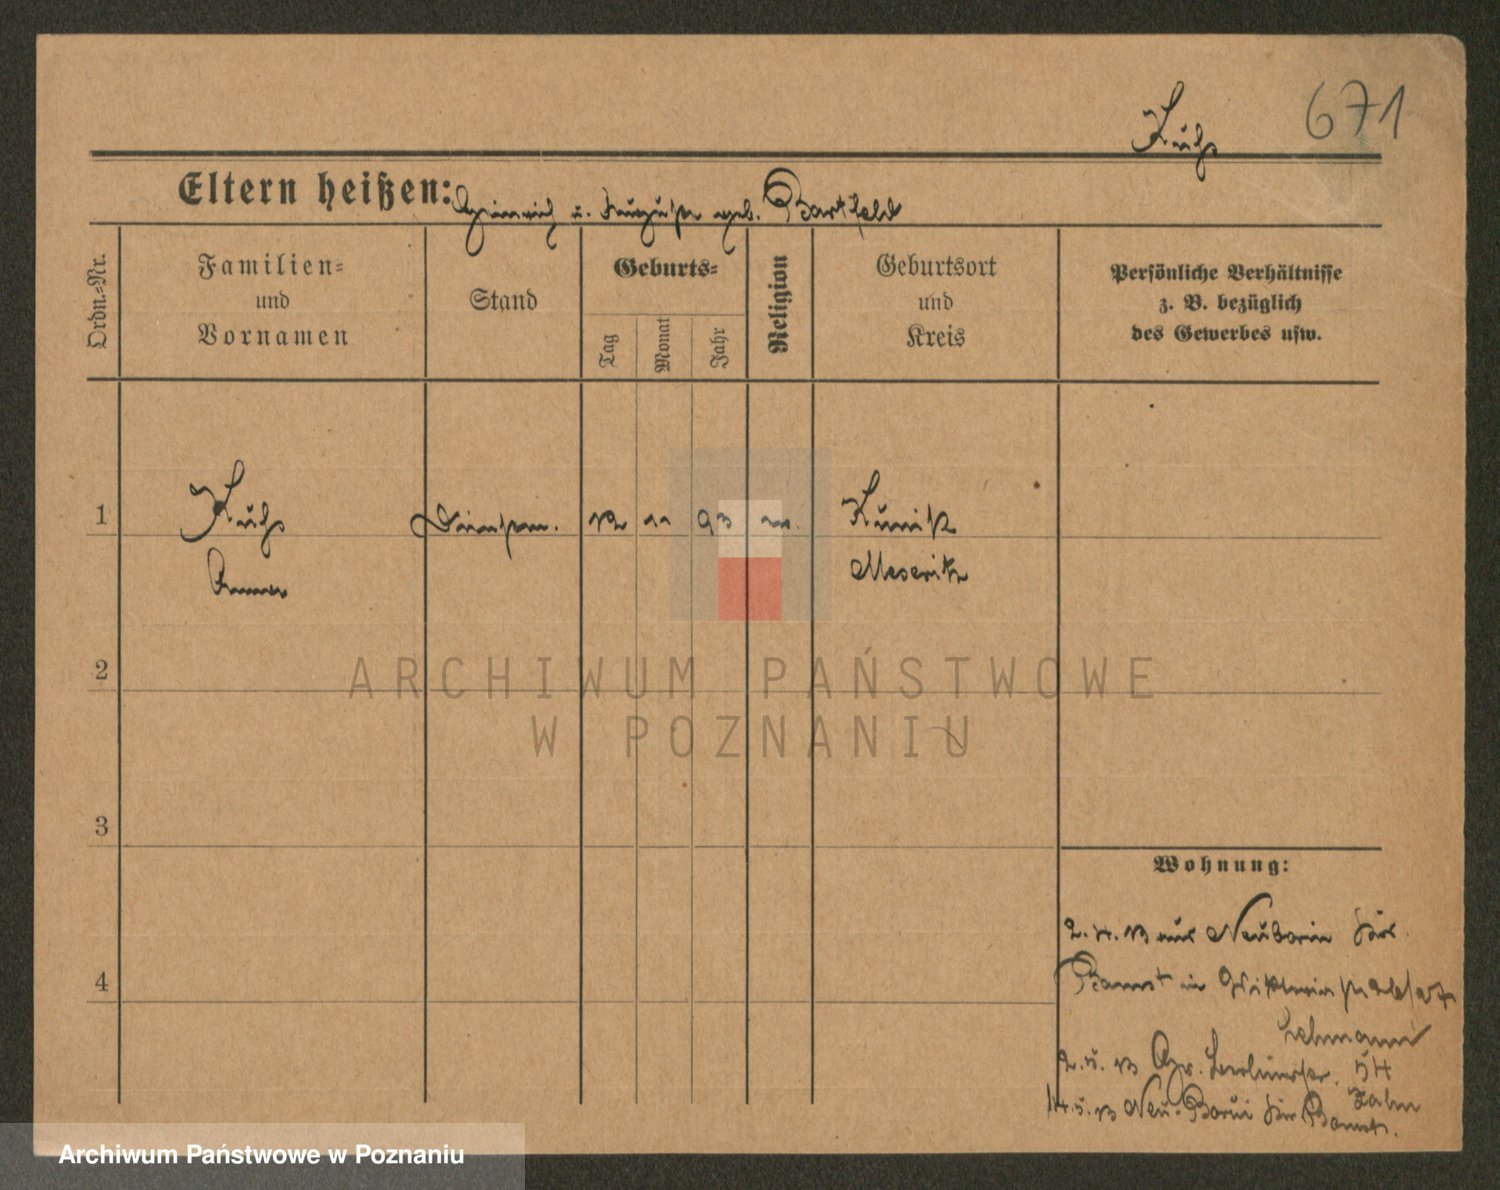 671
Kuhs
Eltern heißen: Heinrich u. Auguste geb. Bartfeld
Ordn.-Nr.
Familien-
und
Vornamen
Stand
Geburts-
Tag
Monat
Jahr
Religion
Geburtsort
und
Kreis
Persönliche Verhältnisse
z. B. bezüglich
des Gewerbes usw.
1
Kuhs
Dienstm. 12 11 93
Kunitz
Anna
Meseritz
2
ARCHIWUM PAŃSTWOWE
W POZNANIU
3
Wohnung:
4
2. 4. 13 aus
Bomst in
Lehmann
2. 5. 13 Gr. Berlinerstr. 54
Jahn
14. 5. 13 Neu-Borui Bomst.
Archiwum Państwowe w Poznaniu